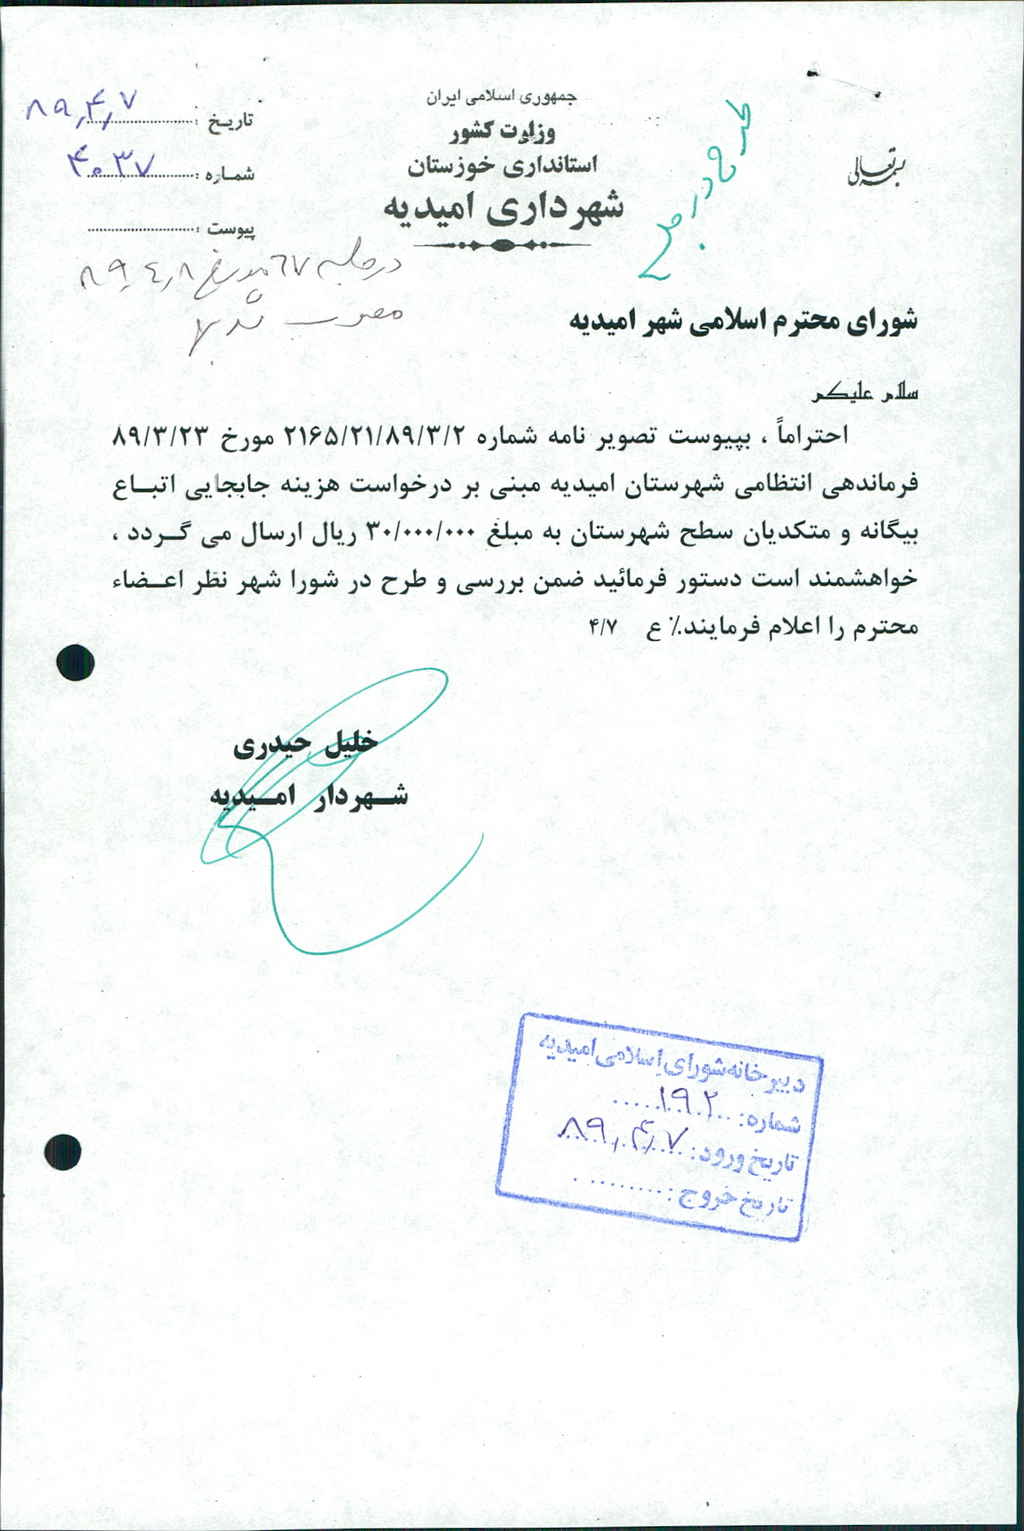 بسمه تعالی
جمهوری اسلامی ایران
وزارت کشور
استانداری خوزستان
شهرداری امیدیه
تاریخ : ۸۹,۴,۷
شماره : ۴۰۳۷
پیوست :
طرح در
در جلسه ٦٧ مورخ ۸۹,٤,۸
مصوب شد
شورای محترم اسلامی شهر امیدیه
سلام علیکم
احتراماً ، بپیوست تصویر نامه شماره ۲۱۶۵/۲۱/۸۹/۳/۲ مورخ ۸۹/۳/۲۳
فرماندهی انتظامی شهرستان امیدیه مبنی بر درخواست هزینه جابجایی اتباع
بیگانه و متکدیان سطح شهرستان به مبلغ ۳۰/۰۰۰/۰۰۰ ریال ارسال می گردد ،
خواهشمند است دستور فرمائید ضمن بررسی و طرح در شورا شهر نظر اعضاء
محترم را اعلام فرمایند٪ ع ۴/۷
خلیل حیدری
شهردار امیدیه
دبیرخانه شورای اسلامی امیدیه
شماره: ۱۹۲
تاریخ ورود: ۸۹,۴,۷
تاریخ خروج :